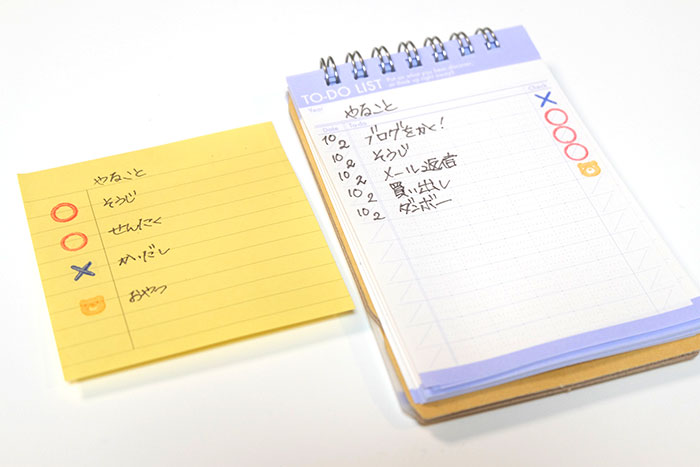 やること
そうじ
せんたく
かいだし
おやつ
TO-DO LIST
やること
Check
10 2 ブログをかく!
10 2 そうじ
10 2 メール返信
10 2 買い出し
10 2 ダンボー